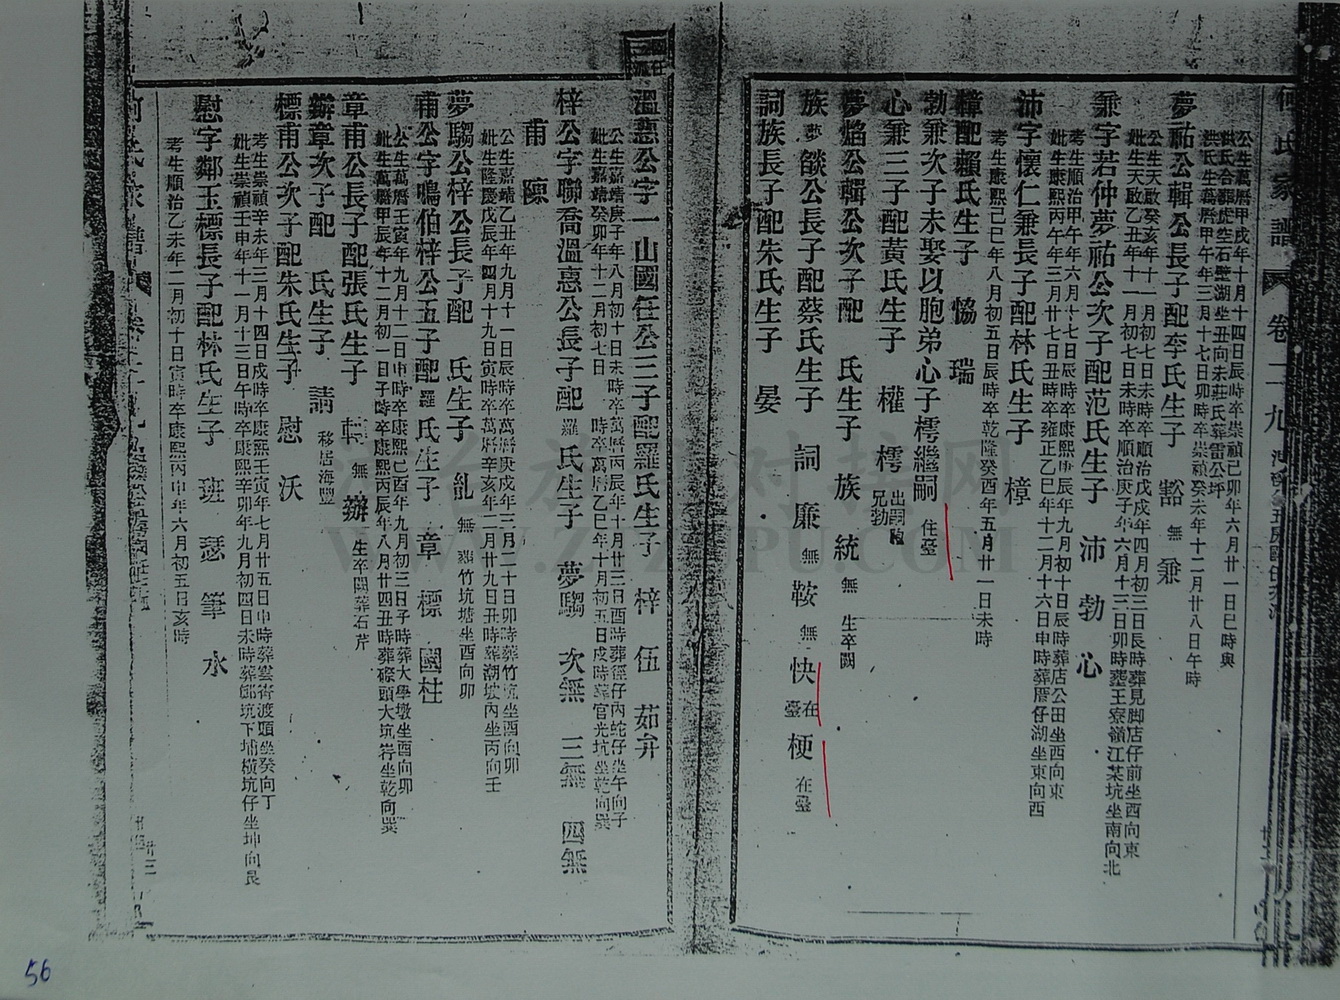 何氏家譜 卷二九
公生萬曆甲戌年十月十四日辰時卒崇禎己卯年六月廿一日巳時與
洪氏合葬虎空石壁湖坐丑向未莊氏葬雷公坪
洪氏生萬曆甲午年三月十七日卯時卒崇禎癸未年十二月廿八日午時
夢祐公輯公長子配李氏生子 豁 無 兼
公生天啟癸亥年十一月初七日未時卒順治戊戌年四月初三日長時葬見脚店仔前坐西向東
妣生天啟乙丑年十一月初七日未時卒順治庚子年六月十三日卯時葬王寮嶺江某坑坐南向北
兼字若仲夢祐公次子配范氏生子 沛 勃 心
考生順治甲午年六月十七日辰時卒康熙庚辰年九月初十日辰時葬店公田坐西向東
妣生康熙丙午年三月廿七日丑時卒雍正乙巳年十二月十六日申時葬厝仔湖坐東向西
沛字懷仁兼長子配林氏生子 樟
考生康熙己巳年八月初五日辰時卒乾隆癸酉年五月廿一日未時
樟配賴氏生子 恊 瑞
勃兼次子未娶以胞弟心子樗繼嗣 住臺
心兼三子配黃氏生子 權 樗 出嗣胞兄勃
夢焰公輯公次子配 氏生子 族 統 無 生卒闕
族 夢燄公長子配蔡氏生子 詞 廉 無 鞍 無 快 在臺 梗 在臺
詞族長子配朱氏生子 晏
溫惠公字一山國任公三子配羅氏生子 梓 伍 茹 弁
公生嘉靖庚子年八月初十日未時卒萬曆丙辰年十月廿三日酉時葬徑仔內蛇仔坐午向子
妣生嘉靖癸卯年十二月初七日 時卒萬曆乙巳年十月初五日戌時葬官光坑坐乾向巽
梓公字聯喬溫惠公長子配 羅 氏生子 夢騶 次無 三無 四無
甫
公生嘉靖乙丑年九月十一日辰時卒萬曆庚戌年三月二十日卯時葬竹坑坐酉向卯
妣生隆慶戊辰年四月十九日寅時卒萬曆辛亥年二月廿九日丑時葬潮坡內坐丙向壬
夢騶公梓公長子配 氏生子 乿 無 葬竹坑塘坐酉向卯
甫公字鳴伯梓公五子配 羅 氏生子 章 標 國柱
公生萬曆壬寅年九月十二日申時卒康熙己酉年九月初三日子時葬大學墩坐酉向卯
妣生萬曆甲辰年十二月初一日子時卒康熙丙辰年八月廿四丑時葬磜頭大坑岃坐乾向巽
章甫公長子配張氏生子 無 辦 生卒闕葬石芹
辦章次子配 氏生子 請 移居海豐
標甫公次子配朱氏生子 慰 沃
考生崇禎辛未年三月十四日戌時卒康熙壬寅年七月廿五日申時葬雲霄渡頭坐癸向丁
妣生崇禎壬申年十一月十三日午時卒康熙辛卯年九月初四日未時葬鄉坑下埔橫坑仔坐坤向艮
慰字鄰玉標長子配林氏生子 班 瑟 筆 水
考生順治乙未年二月初十日寅時卒康熙丙申年六月初五日亥時
廿三
56